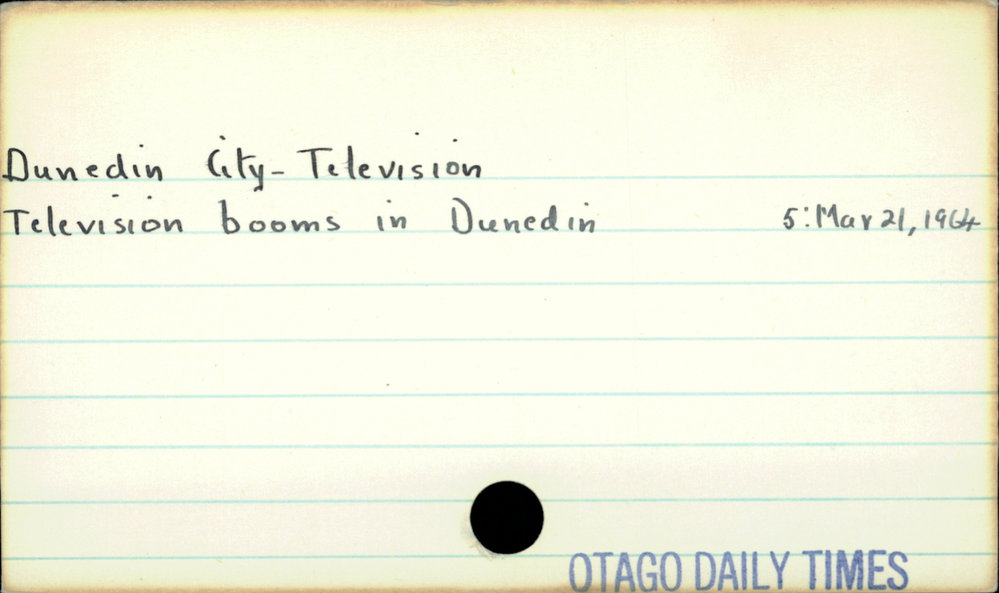 Dunedin City - Television
Television booms in Dunedin 5: Mar 21, 1964
OTAGO DAILY TIMES